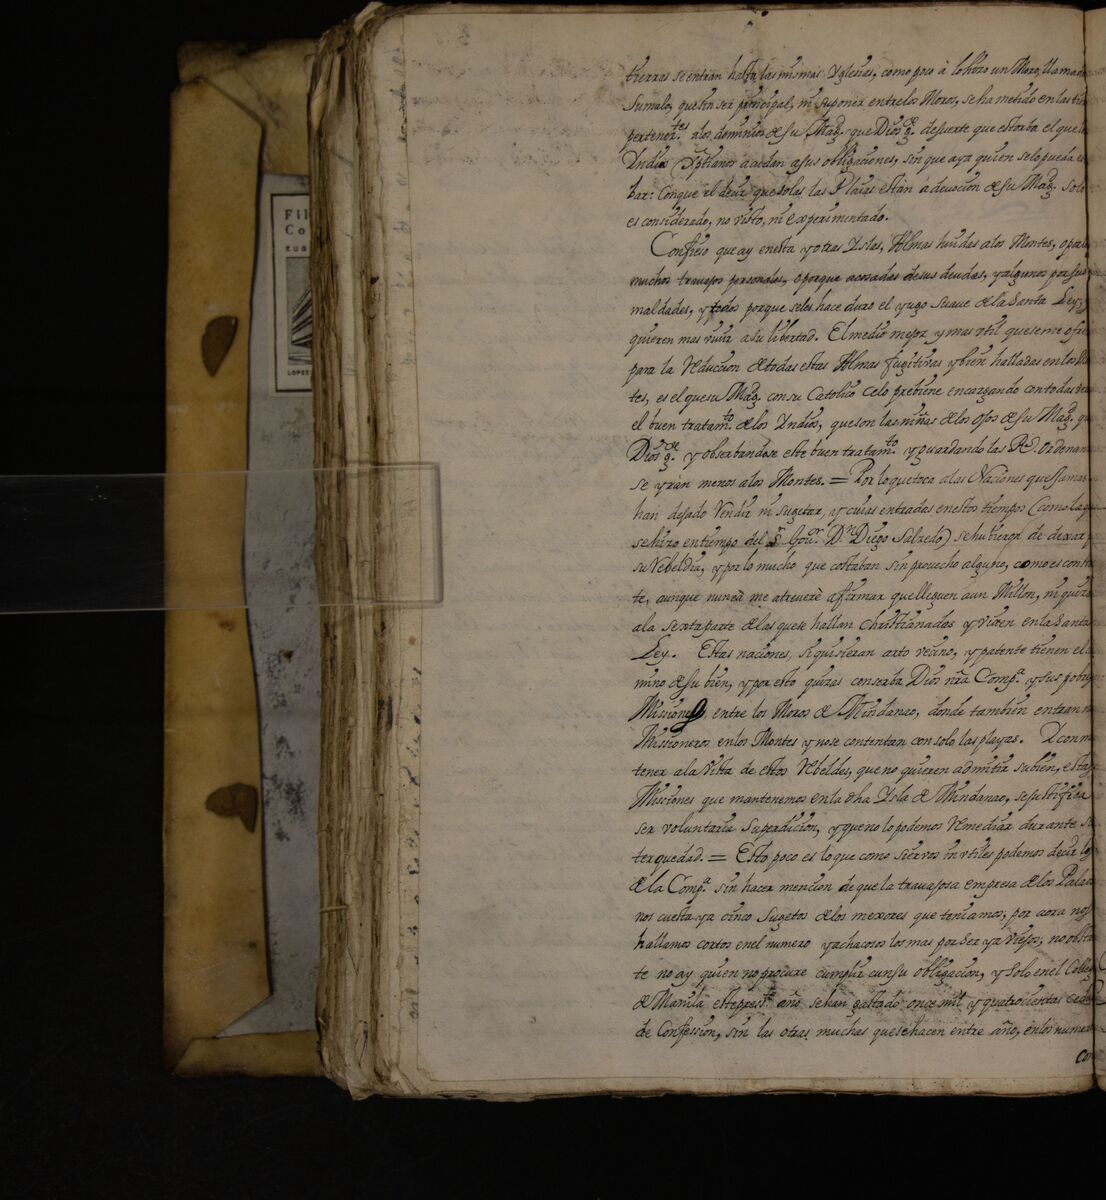 Fil
Co
EUG
LOPEZ
tierras se entran hasta las mismas Yglesias, como poco à lo hizo un Moro, llamado
Sumalo, que sin ser principal, ni suponer entre los Moros, se ha metido en las tier
pertenez.tes alos dominios de su Mag.d que Dios g.de de suerte que estorba el que l
Yndios Xptianos acudan a sus obligaciones, sin que aya quien se lo pueda es
bar: Conque el decir que solas las Plaias estàn à devocion de su Mag.d solo
es considerado, no visto, ni experimentado.
Confieso que ay en esta y otras Yslas, Almas huidas a los Montes, o por
muchos travajos personales, o porque acosadas de sus deudas, y algunos por sus
maldades, y todos porque seles hace duro el yugo suave de la Santa Ley, y
quieren mas vivir a su libertad. El medio mejor y mas vtil que se me ofre
para la reduccion de todas estas Almas fugitivas y bien halladas en los Mo
tes, es el que su Mag.d con su Catolico celo prebiene encargando con todas ve
el buen tratam.to de los Yndios, que son las niñas de los ojos de su Mag.d q
Dios g.de y observandose este buen tratam.to y guardando las R.s Ordenan
se yran menos alos Montes. = Por lo que toca a las Naciones que Jamas
han dejado rendir ni sugetar, y cuias entradas en estos tiempos (como la q
se hizo en tiempo del S.r Gou.or D.n Diego Salzedo) se hutieron de dexar p
su rebeldia, y por lo mucho que costaban sin provecho alguno, como es const
te, aunque nunca me atreverè afirmar que lleguen a un Millon, ni quiza
a la sexta parte de las que se hallan christianadas y viven en la Santa
Ley. Estas naciones, si quisieran arto vecino, y patente tienen el ca
mino de su bien, y por esto quizas conserba Dios nr̃a Comp.a y sus pobres
Misiones entre los Moros de Mindanao, donde tambien entran n
Missioneros en los Montes y no se contentan con solo las playas. Y con m
tener a la vista de estos rebeldes, que no quieren admitir su bien, estas
Misiones que mantenemos en la dha Ysla de Mindanao, se justifica
ser voluntaria su perdicion, y que no lo podemos remediar durante su
terquedad. = Esto poco es lo que como siervos inutiles podemos decir los
de la Comp.a sin hacer mencion de que la travajosa empresa de los Palaos
nos cuesta ya cinco sugetos de los mexores que teniamos, por aora nos
hallamos cortos en el numero y achacosos los mas por ser ya viejos, no obsta
te no ay quien no procure cumplir con su obligacion, y solo en el Colleg
de Manila este pres.te año se han gastado once mil y quatrocientas cedul
de Confession, sin las otras muchas que se hacen entre año, en los nume
con